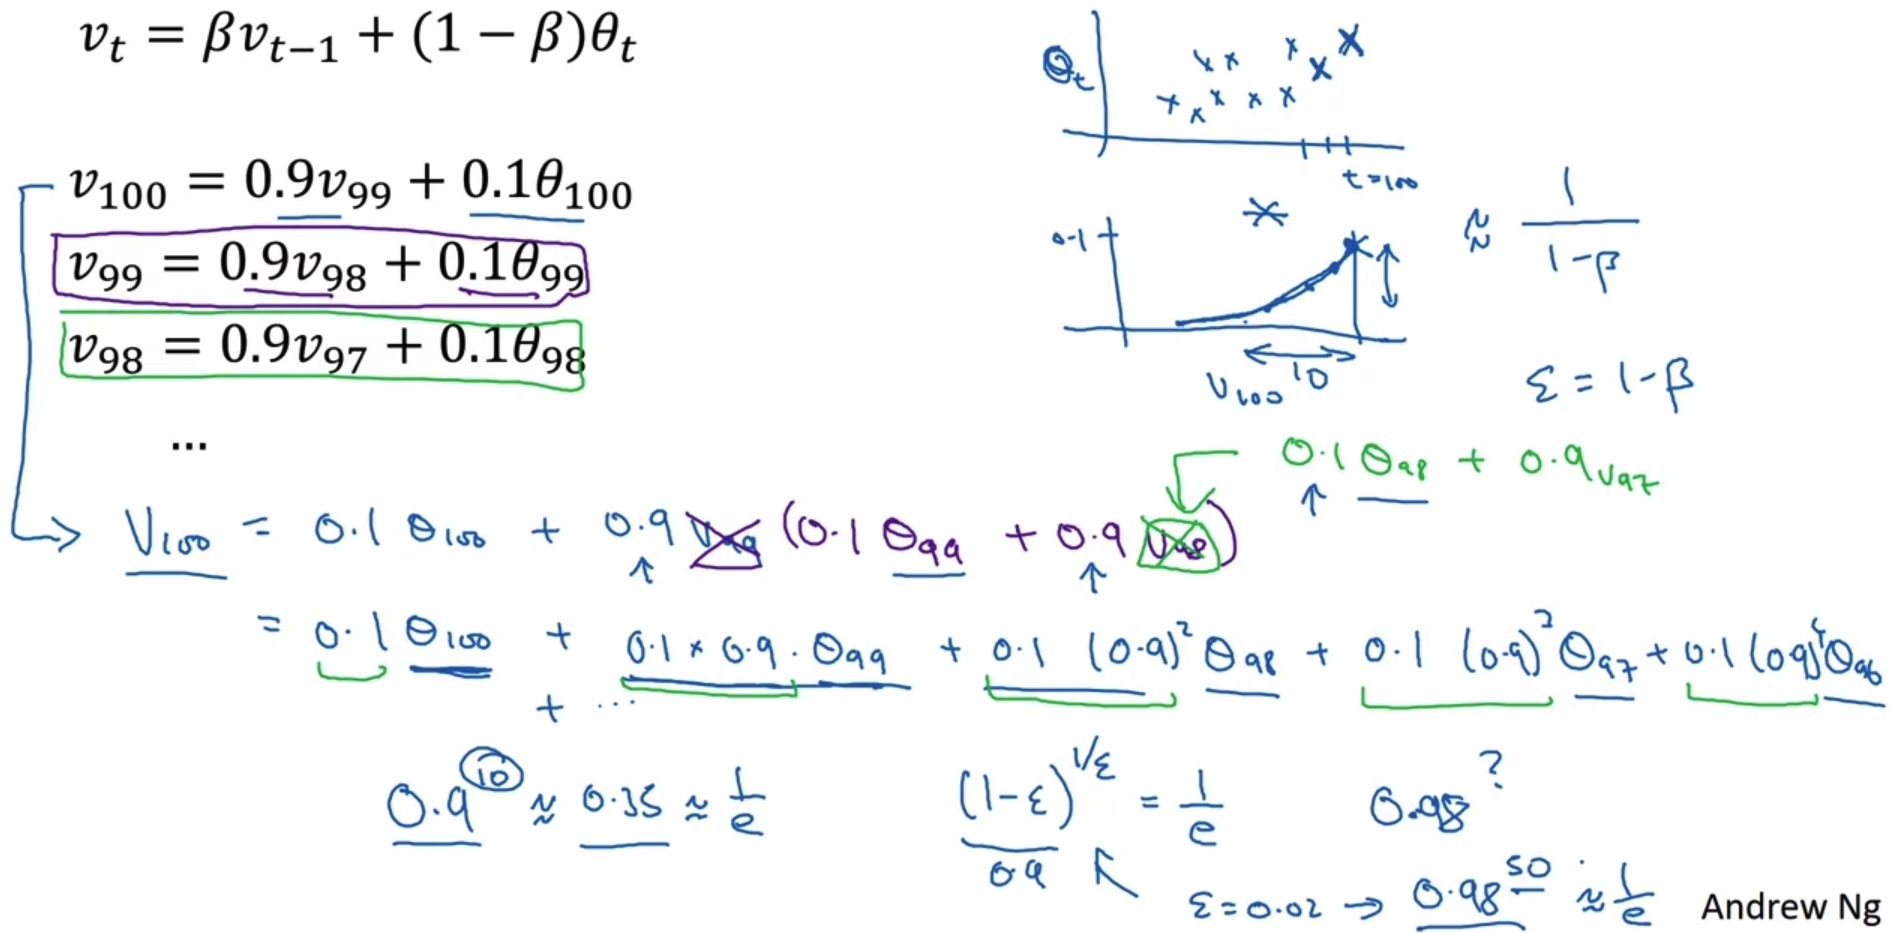 vₜ = βvₜ₋₁ + (1 − β)θₜ
v₁₀₀ = 0.9v₉₉ + 0.1θ₁₀₀
v₉₉ = 0.9v₉₈ + 0.1θ₉₉
v₉₈ = 0.9v₉₇ + 0.1θ₉₈
...
θₜ
t=100
0.1
V₁₀₀
10
≈ 1/(1-β)
ε = 1-β
0.1 θ₉₈ + 0.9 V₉₇
V₁₀₀ = 0.1 θ₁₀₀ + 0.9 V₉₉ (0.1 θ₉₉ + 0.9 V₉₈)
= 0.1 θ₁₀₀ + 0.1 × 0.9 · θ₉₉ + 0.1 (0.9)² θ₉₈ + 0.1 (0.9)³ θ₉₇ + 0.1 (0.9)⁴ θ₉₆
+ ...
0.9¹⁰ ≈ 0.35 ≈ 1/e
(1-ε)^1/ε = 1/e
0.9
0.98^?
ε = 0.02 → 0.98⁵⁰ ≈ 1/e
Andrew Ng